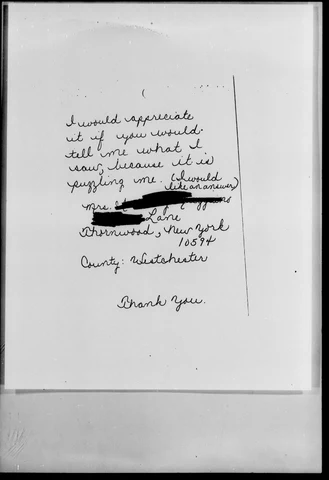 I would appreciate
it if you would
tell me what I
saw, because it is
puzzling me. (I would
like an answer)
Mrs.
Lane
Thornwood, New York
10594
County: Westchester
Thank You.